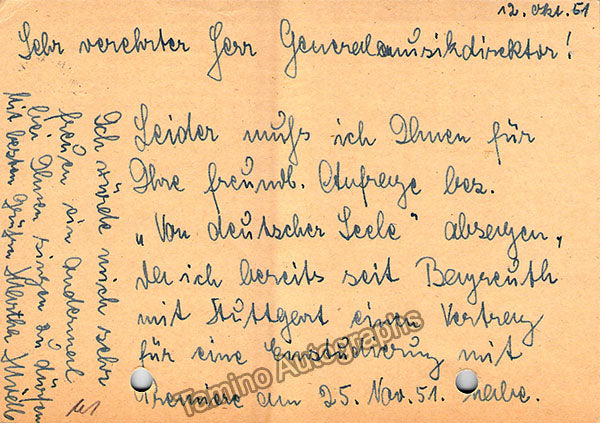 12. Okt. 51
Sehr verehrter Herr Generalmusikdirektor!
Leider muß ich Ihnen für
Ihre freundl. Anfrage bez.
„Von deutscher Seele" absagen,
da ich bereits seit Bayreuth
mit Stuttgart einen Vertrag
für eine Einstudierung mit
Premiere am 25. Nov. 51. habe.
Ich würde mich sehr
freuen ein andermal
bei Ihnen singen zu dürfen
Mit besten Grüßen Hertha
Tamino Autographs